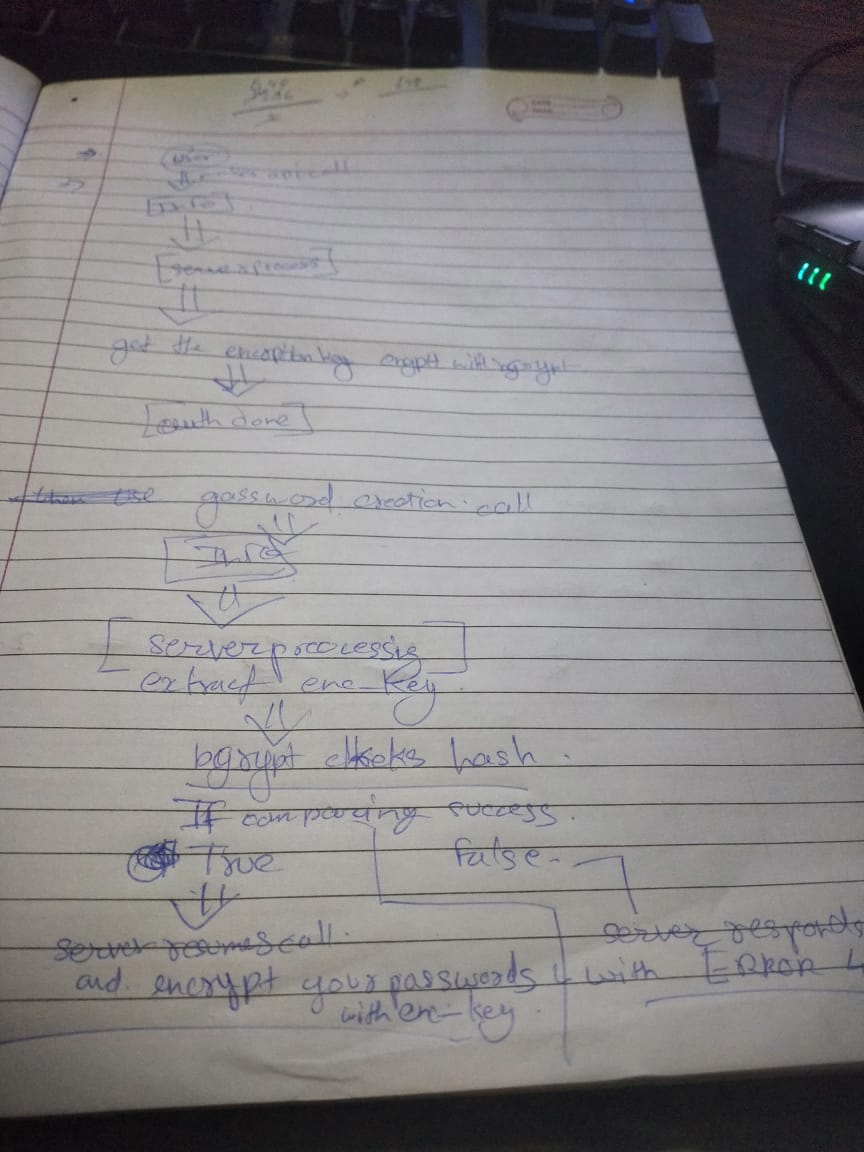 user
api call
Info
server process
get the encryption key encrypt with bcrypt
[auth done]
then use password creation call
Info
[server processing]
extract enc-key.
bcrypt checks hash.
If comparing success.
True False-
server resumes call. server responds
and. encrypt your passwords with ERROR
with enc-key.